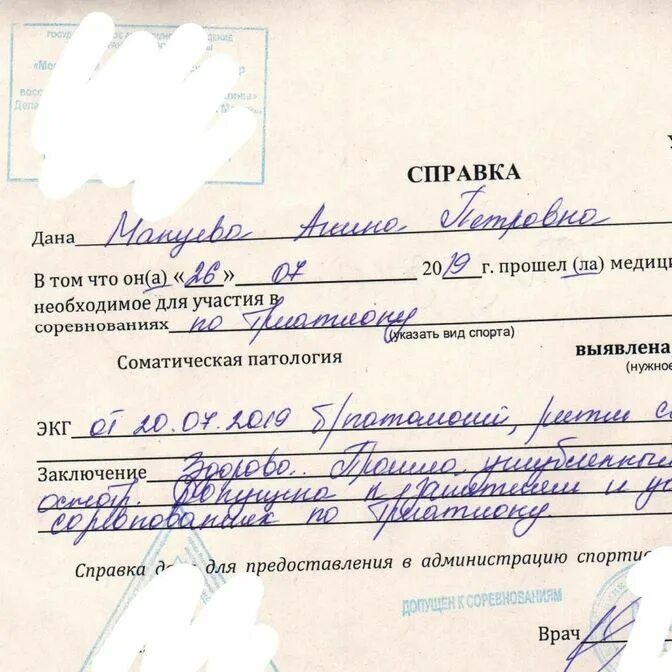 СПРАВКА
Дана Манцева Анна Петровна
В том что он(а) «26» 07 2019 г. прошел (ла) медици
необходимое для участия в
соревнованиях по Триатлону
(указать вид спорта)
Соматическая патология выявлена
(нужное
ЭКГ от 20.07.2019 б/патологий, ритм с
Заключение Здорова. Прошла углубленный
осмотр. Допущена к занятиям и
соревнованиях по Триатлону.
Справка для предоставления в администрацию спорти
ДОПУЩЕН К СОРЕВНОВАНИЯМ
Врач